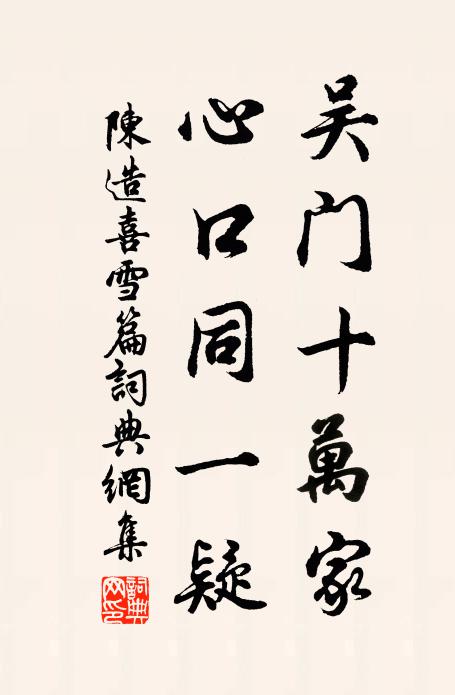 吴门十萬家
心口同一疑
陳造喜雪篇詞典網集
詞典网印